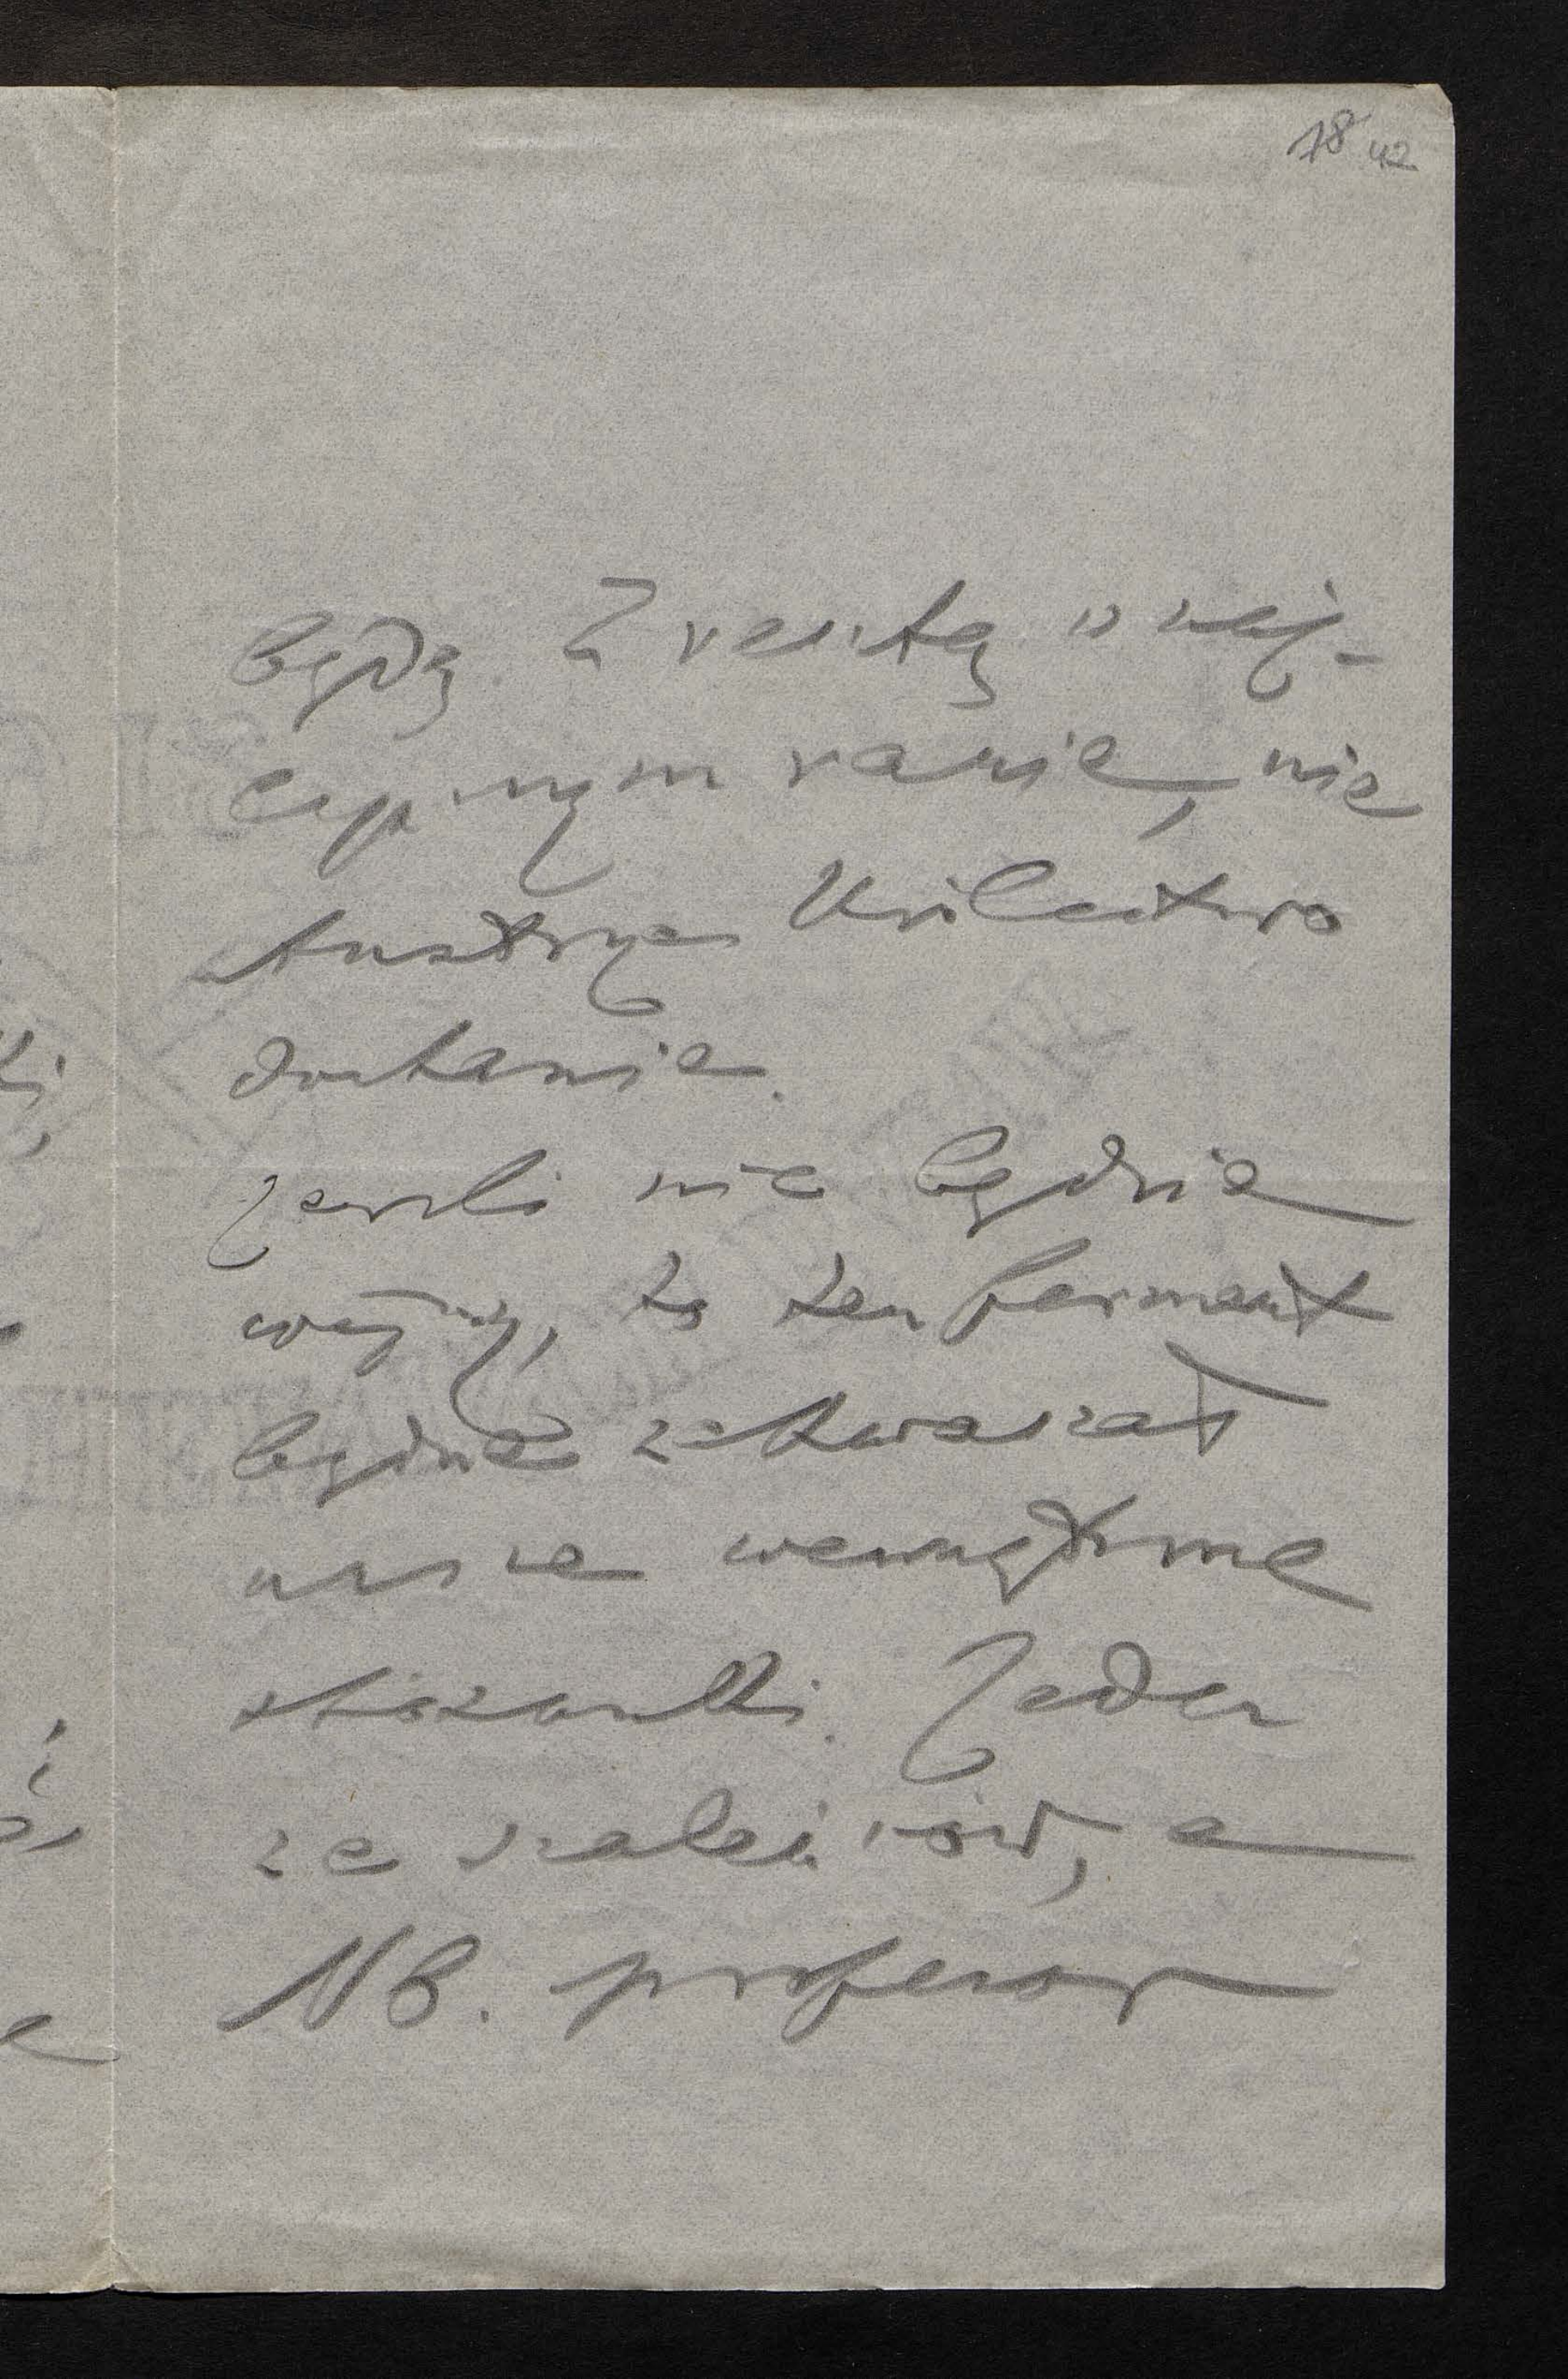 18 42
będą. Zresztą w naj-
lepszym razie, nie
Austrya Królestwo
dostanie.
Jeżeli nie będzie
wojny, to ten ferment
będzie zakwaszał
nasze wewnętrzne
stosunki. Jeden
ze szaleńców, a
NB. profesor